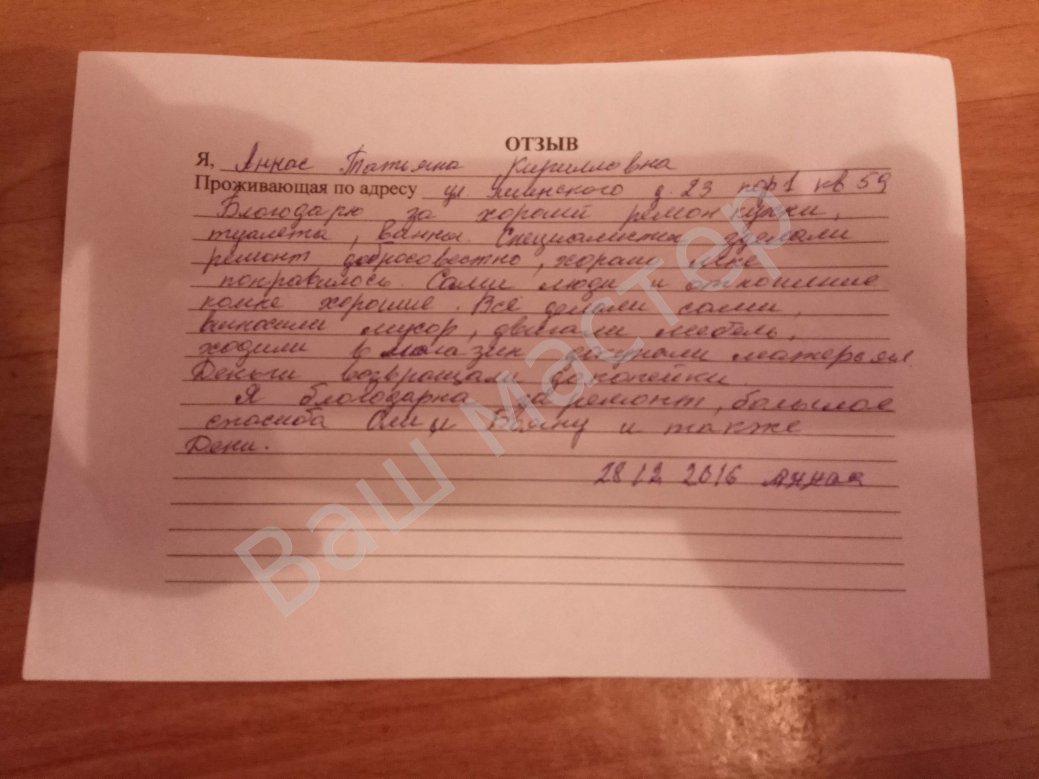 ОТЗЫВ
Я, Аннас Татьяна Кирилловна
Проживающая по адресу ул д 23 кор 1 кв 59
Благодарю за хороший ремон кухни,
туалета, ванны. Специалисты зделали
ремонт добросовестно, хорошо мне
понравилось. Сами люди и отношение
комне хорошие. Все делали сами,
выносили мусор, двигали мебель,
ходили в магазин докупали матерьял
Деньги возвращали докопейки
Я благодарна за ремонт, большое
спасибо Оли и Ивану и также
Дени.
28 12 2016 Аннас
Ваш Мастер